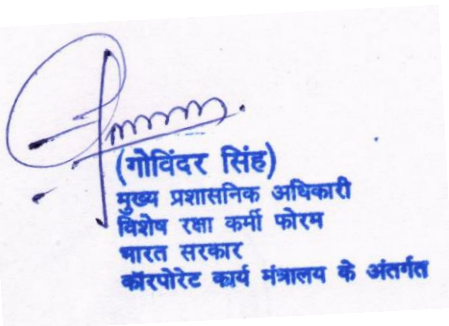 (गोविंदर सिंह)
मुख्य प्रशासनिक अधिकारी
विशेष रक्षा कर्मी फोरम
भारत सरकार
कॉरपोरेट कार्य मंत्रालय के अंतर्गत